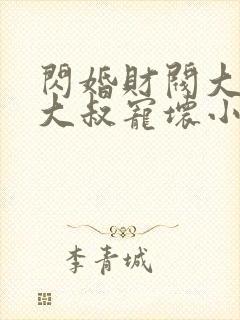 閃婚財閥大
大叔寵壞小
李青城